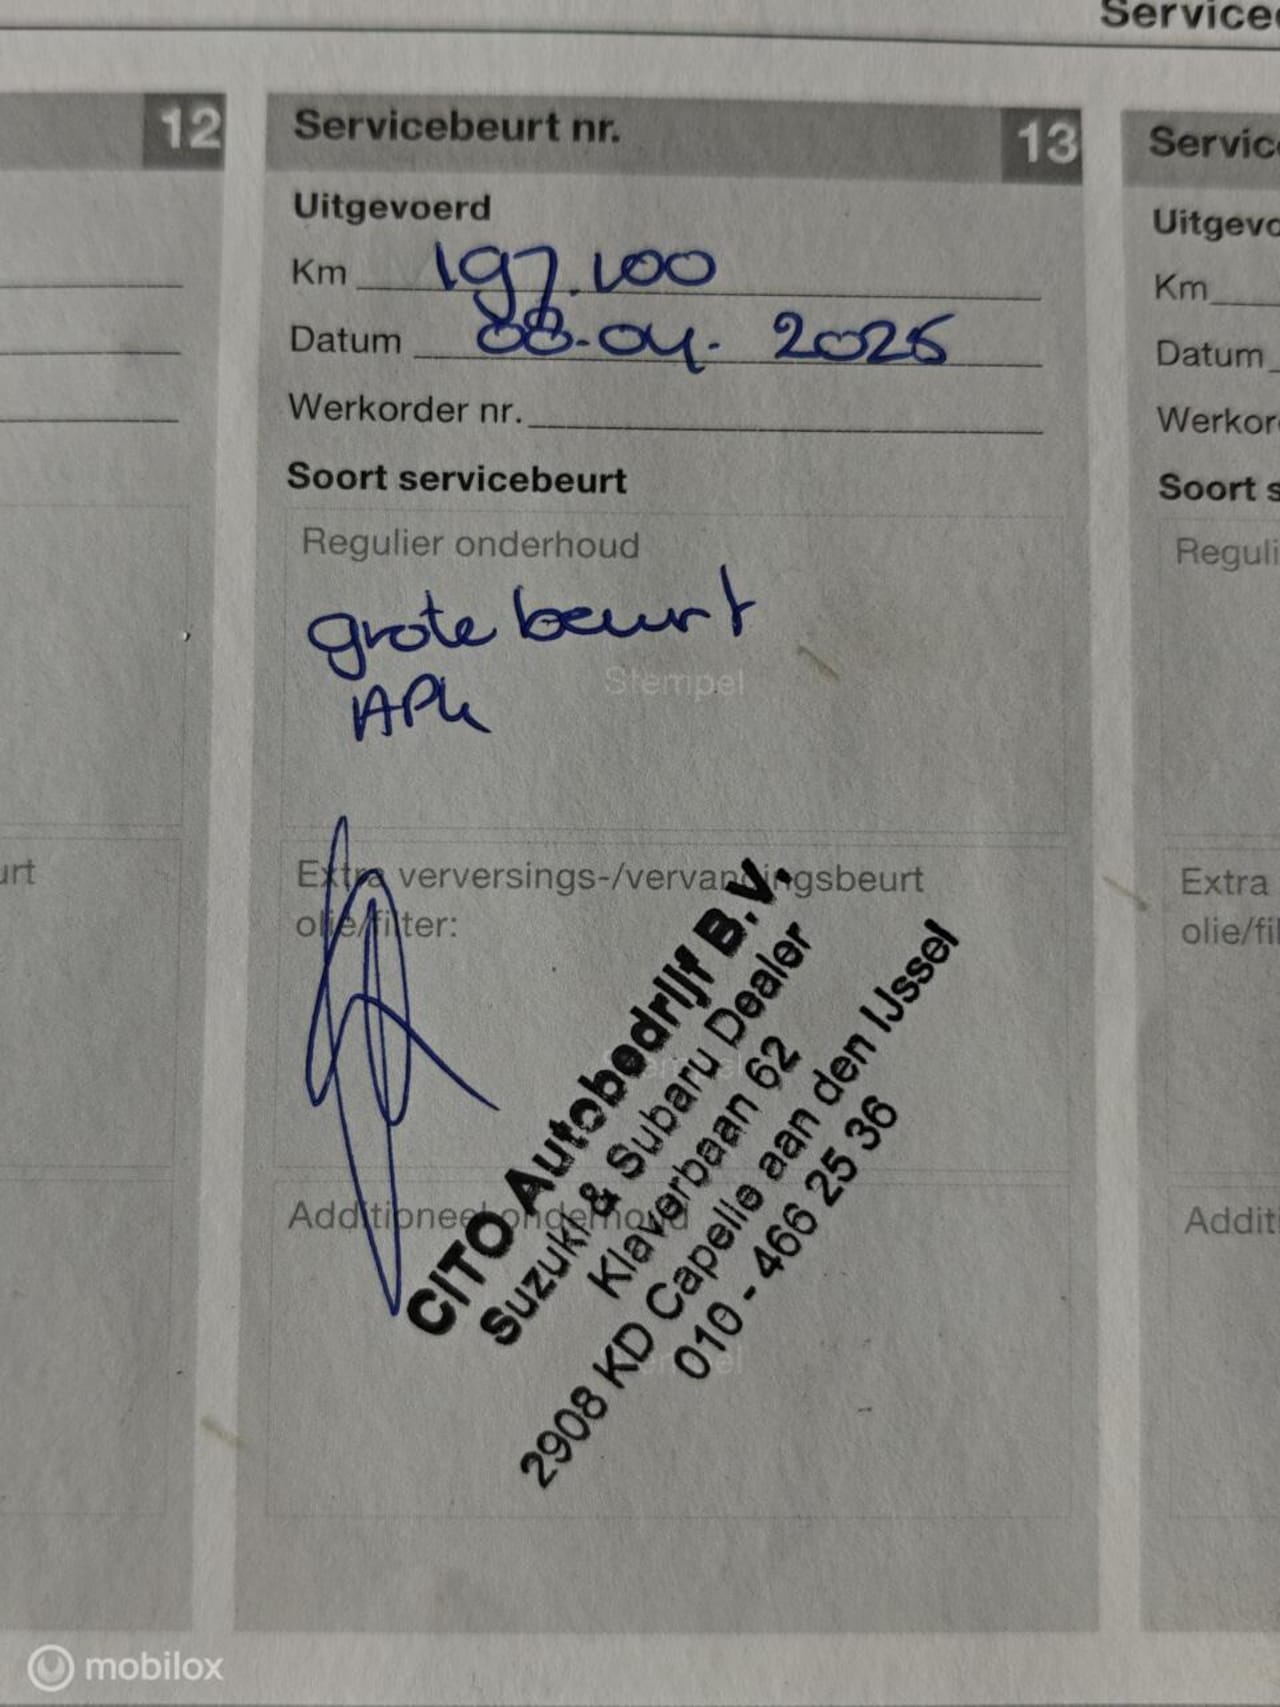 Service
12
Servicebeurt nr.
13
Uitgevoerd
Km 197.100
Datum 08-04-2025
Werkorder nr.
Soort servicebeurt
Regulier onderhoud
grote beurt
Stempel
APk
Extra verversings-/vervangingsbeurt
olie/filter:
Additioneel onderhoud
CITO Autobedrijf B.V.
Suzuki & Subaru Dealer
Klaverbaan 62
2908 KD Capelle aan den IJssel
010 - 466 25 36
urt
Servic
Uitgevo
Km
Datum
Werkor
Soort s
Reguli
Extra
olie/fil
Addit
mobilox